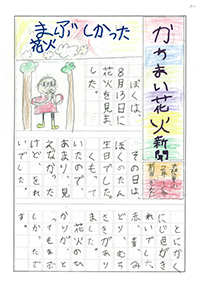 かがまい花火新聞
まんぶしかった
花火
ぼくは、
8月13日に
花火を見ま
した。
その日は、
ぼくのたん
生日でした。
くもって
いたので、
あまり、見
えなかった
けど、きれ
いでした。
とにかく
にじ色がき
れいでした。
赤、青、み
どり、むら
さきがあり
ました。
花火のひ
かりが、と
ってもまぶ
しかったで
す。